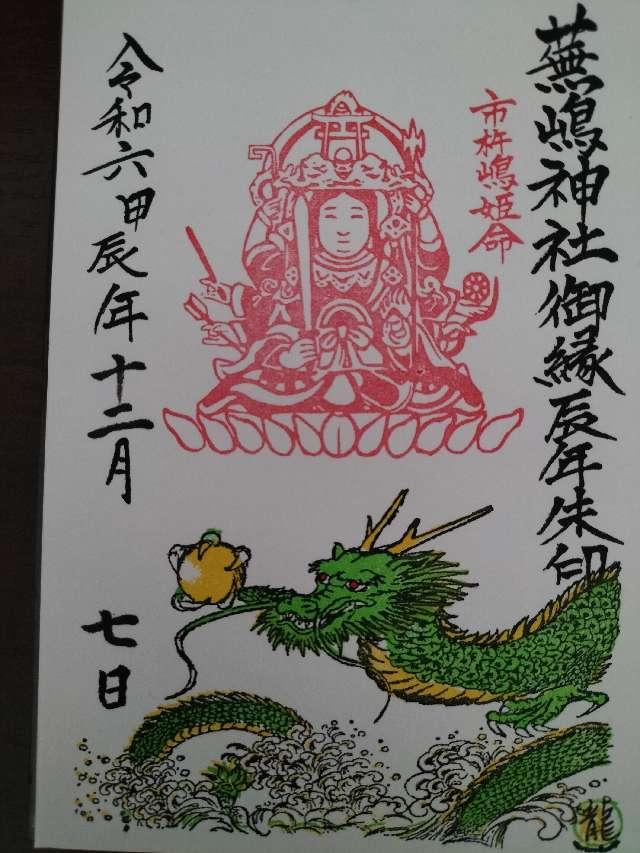 蕪嶋神社御縁辰年朱印
市杵嶋姫命
令和六甲辰年十二月
七日
龍